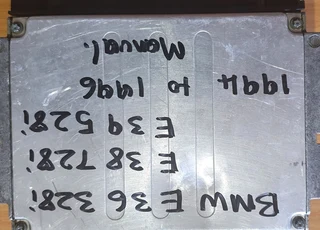 BMW E36 328i
E38 728i
E39 528i
1994 to 1996
Manual.